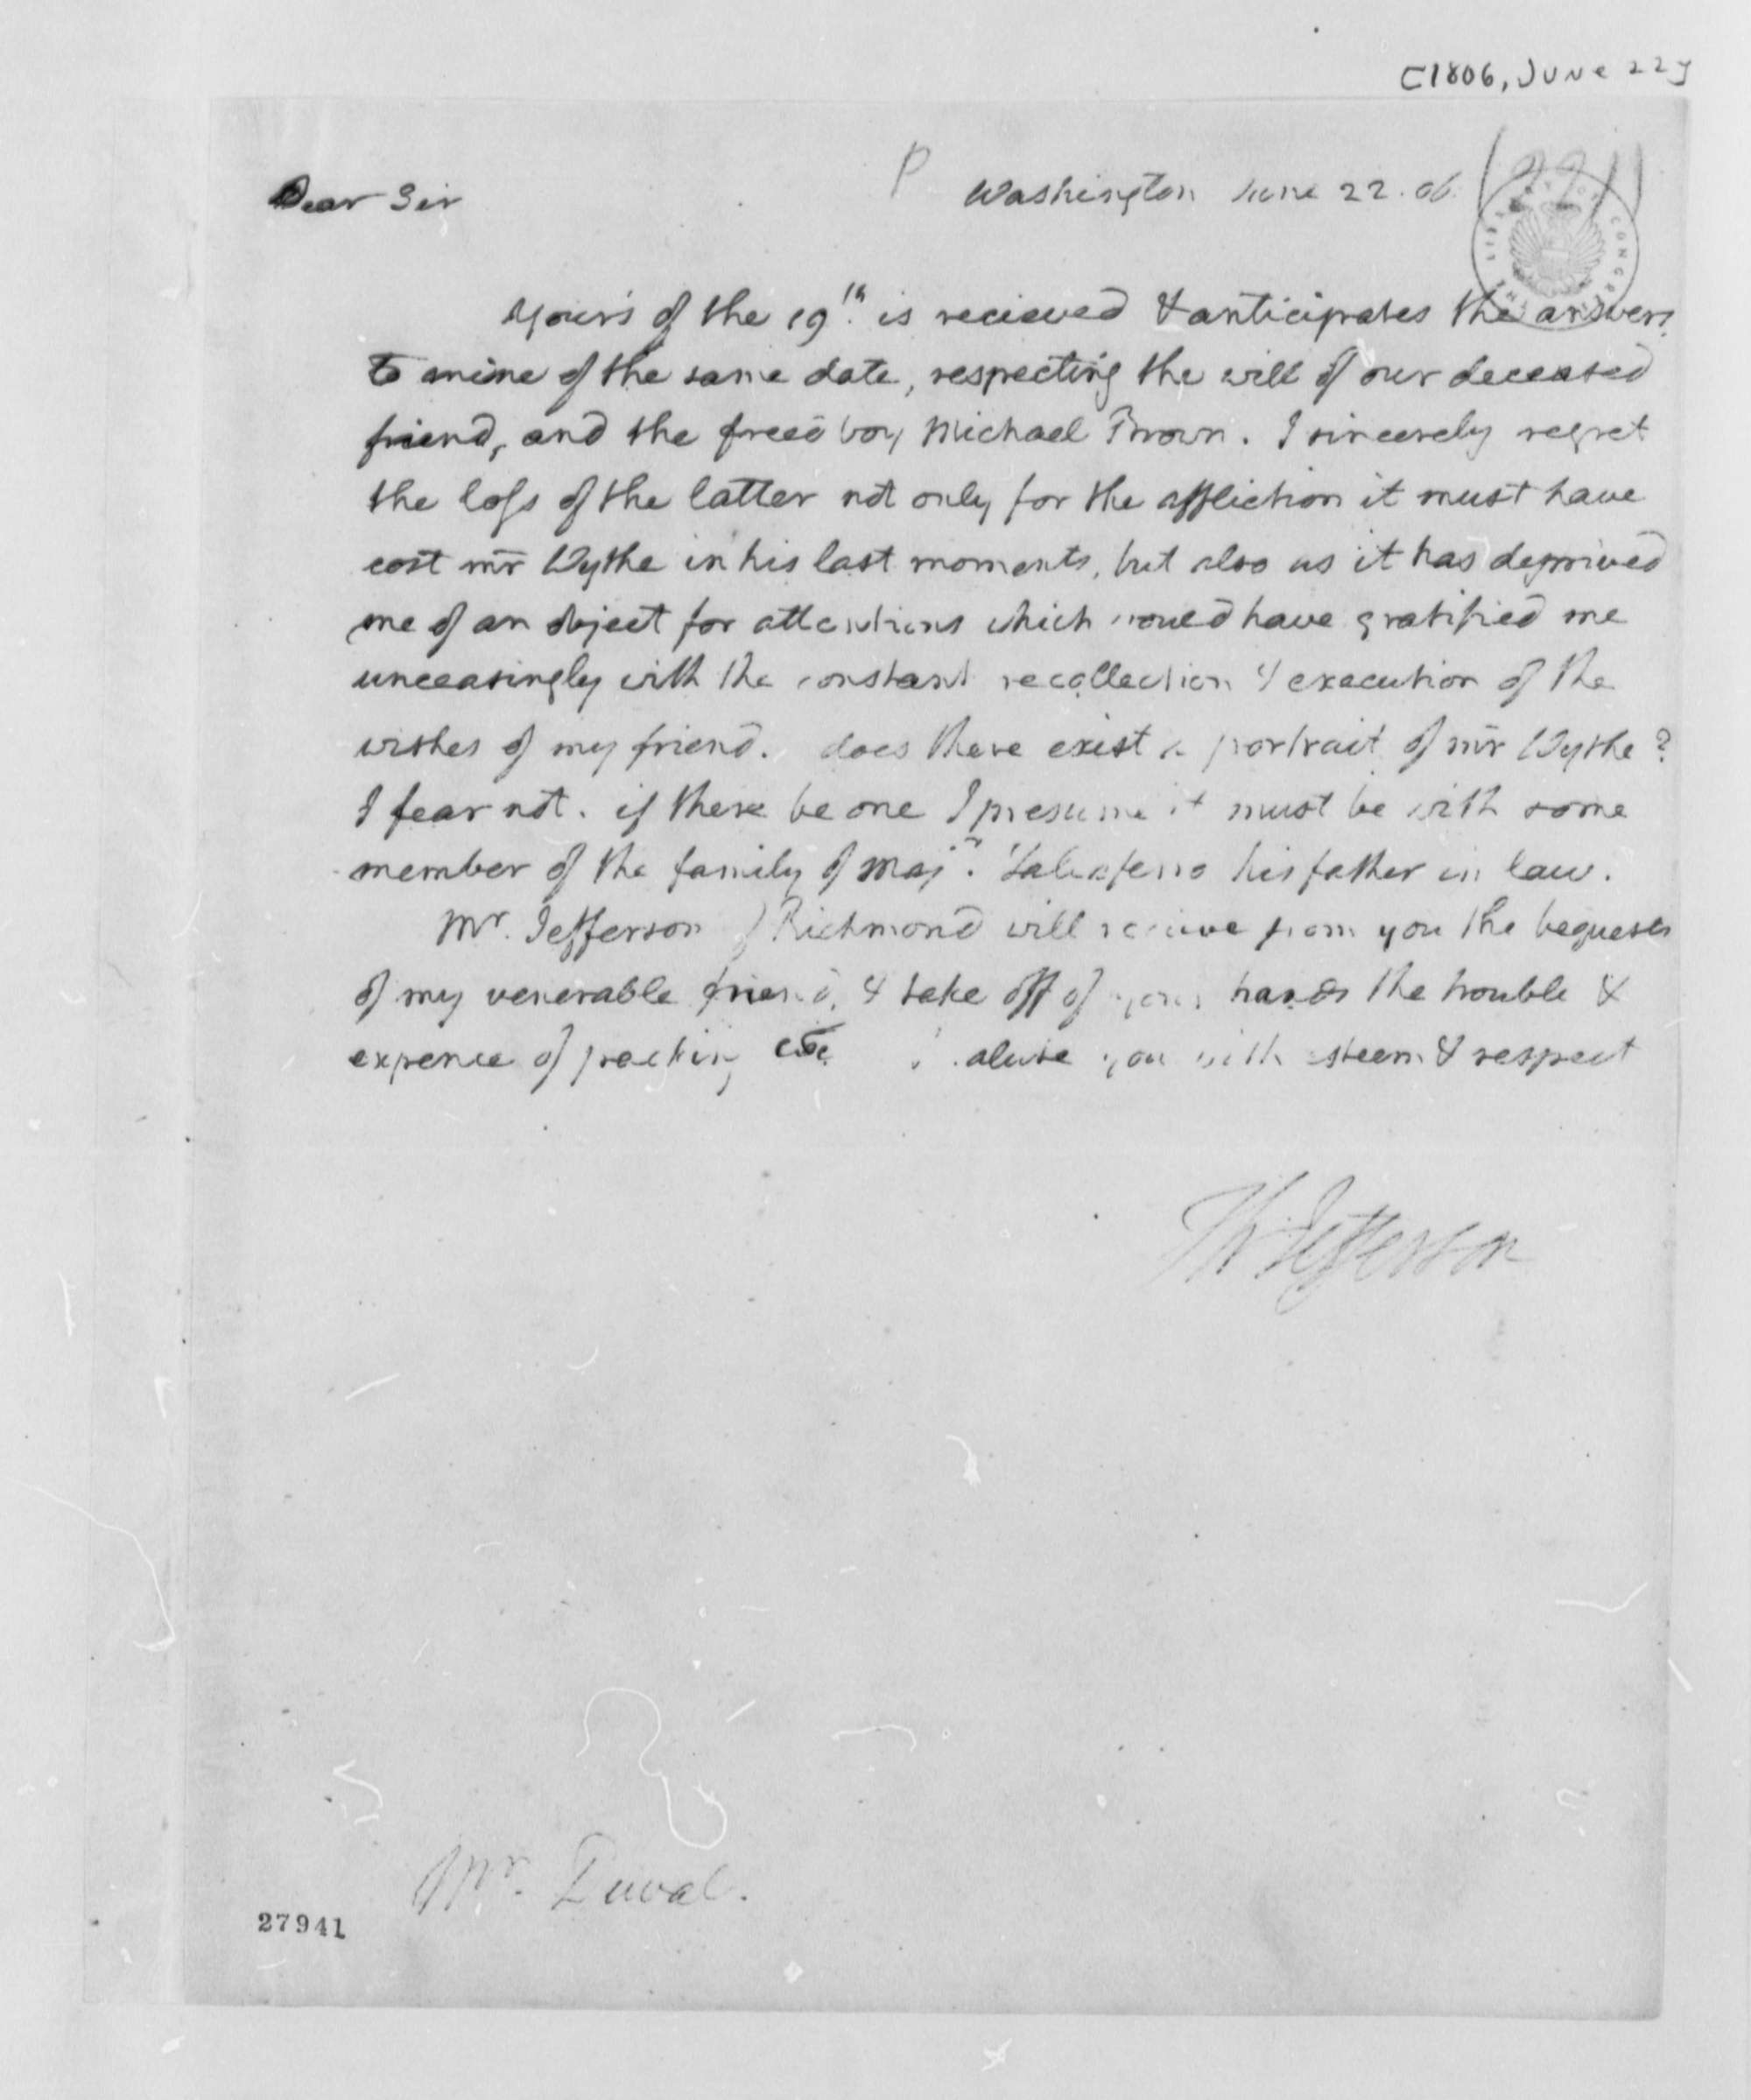 [1806, June 22]
P Washington June 22. 06.
Dear Sir
Yours of the 19th. is recieved & anticipates the answers
to mine of the same date, respecting the will of our deceased
friend, and the freed boy Michael Brown. I sincerely regret
the loss of the latter not only for the affliction it must have
cost mr Wythe in his last moments, but also as it has deprived
me of an object for attentions which would have gratified me
unceasingly with the constant recollection & execution of the
wishes of my friend. does there exist a portrait of mr Wythe?
I fear not. if there be one I presume it must be with some
member of the family of Majr. Taliaferro his father in law.
Mr. Jefferson of Richmond will recieve from you the bequests
of my venerable friend, & take off of your hands the trouble &
expence of packing &c. I salute you with esteem & respect
Th Jefferson
Mr. Duval.
27941